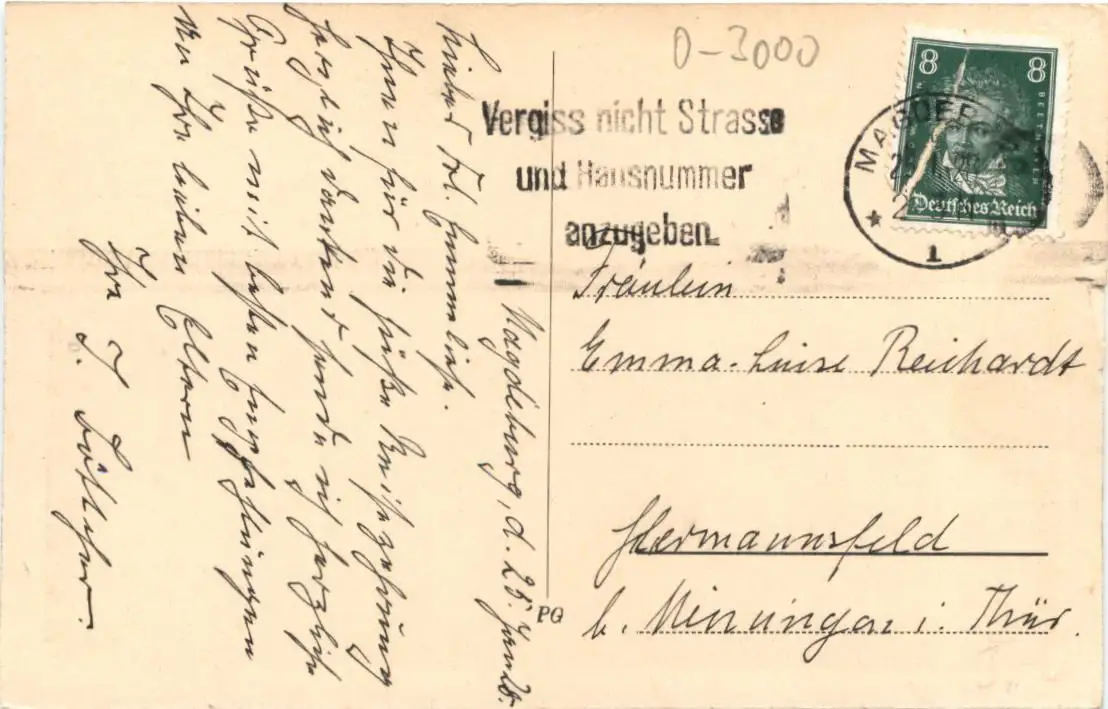 Magdeburg, d. 25.
Liebes Frl. Emmeliese.
Ihnen für die süße
herzlich dankend, sende ich herzliche
Grüße mit besten Empfehlungen
an Ihre lieben Eltern
Ihr
0-3000
Vergiss nicht Strasse
und Hausnummer
anzugeben.
8 8
Deutsches Reich
MAGDEB
1
Fräulein
Emma-Luise Reichardt
Hermannsfeld
b. Meiningen i. Thür.
PG